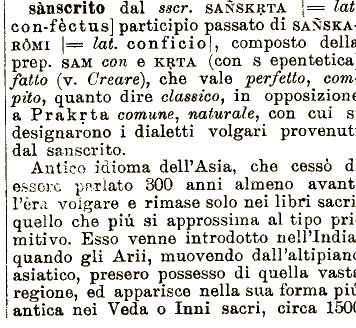 sànscrito dal sscr. SAÑSKṚTA [= lat.
con-fèctus] participio passato di SAÑSKA-
RÔMI [= lat. conficio], composto della
prep. SAM con e KṚTA (con s epentetica)
fatto (v. Creare), che vale perfetto, com-
pito, quanto dire classico, in opposizione
a Prakṛta comune, naturale, con cui s
designarono i dialetti volgari provenut
dal sanscrito.
Antico idioma dell'Asia, che cessò d
essere parlato 300 anni almeno avant
l'èra volgare e rimase solo nei libri sacri
quello che piú si approssima al tipo pri-
mitivo. Esso venne introdotto nell'India
quando gli Arii, muovendo dall'altipiano
asiatico, presero possesso di quella vasta
regione, ed apparisce nella sua forma piú
antica nei Veda o Inni sacri, circa 1500